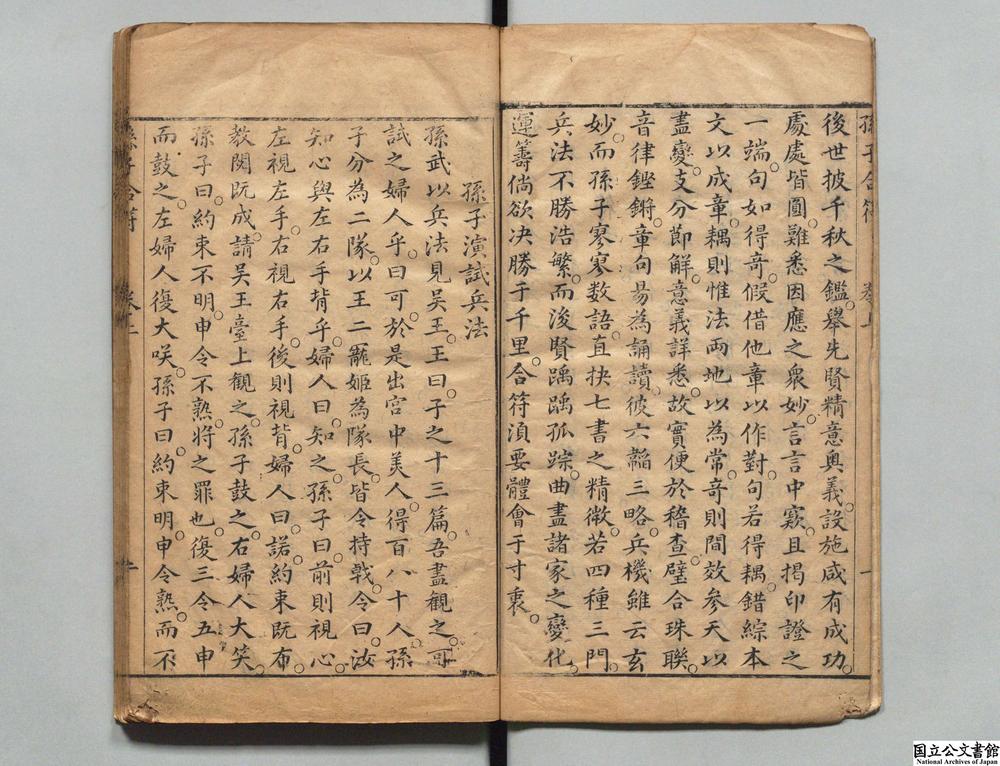 孫子合符 卷上 一
後世披千秋之鑑。舉先賢精意奧義。設施咸有成功。
處處皆圓。難悉因應之衆妙。言言中窾。且揭印證之
一端。句如得竒。假借他章以作對。句若得耦。錯綜本
文以成章。耦則惟法両地以為常。竒則間效參天以
盡變。支分節解。意義詳悉。故實便於稽查。璧合珠聯。
音律鏗鏘。章句昜為誦讀。彼六韜三略。兵機雖云玄
妙。而孫子寥寥数語。直抉七書之精微。若四種三門。
兵法不勝浩繁。而浚賢踽踽孤踪。曲盡諸家之變化。
運籌倘欲决勝于千里。合符湏要體會于寸衷。
孫子演試兵法
孫武以兵法見吳王。王曰。子之十三篇。吾盡觀之。可
試之婦人乎。曰可。於是出宮中美人。得百八十人。孫
子分為二隊。以王二寵姬為隊長。皆令持戟。令曰。汝
知心與左右手背乎。婦人曰。知之。孫子曰。前則視心。
左視左手。右視右手。後則視背。婦人曰。諾。約束既布。
教閱既成。請吳王臺上觀之。孫子鼓之。右婦人大笑。
孫子曰。約束不明。申令不熟。將之罪也。復三令五申
而鼓之。左婦人復大咲。孫子曰。約束明。申令熟。而不
孫子合符 卷上
國立公文書館
National Archives of Japan